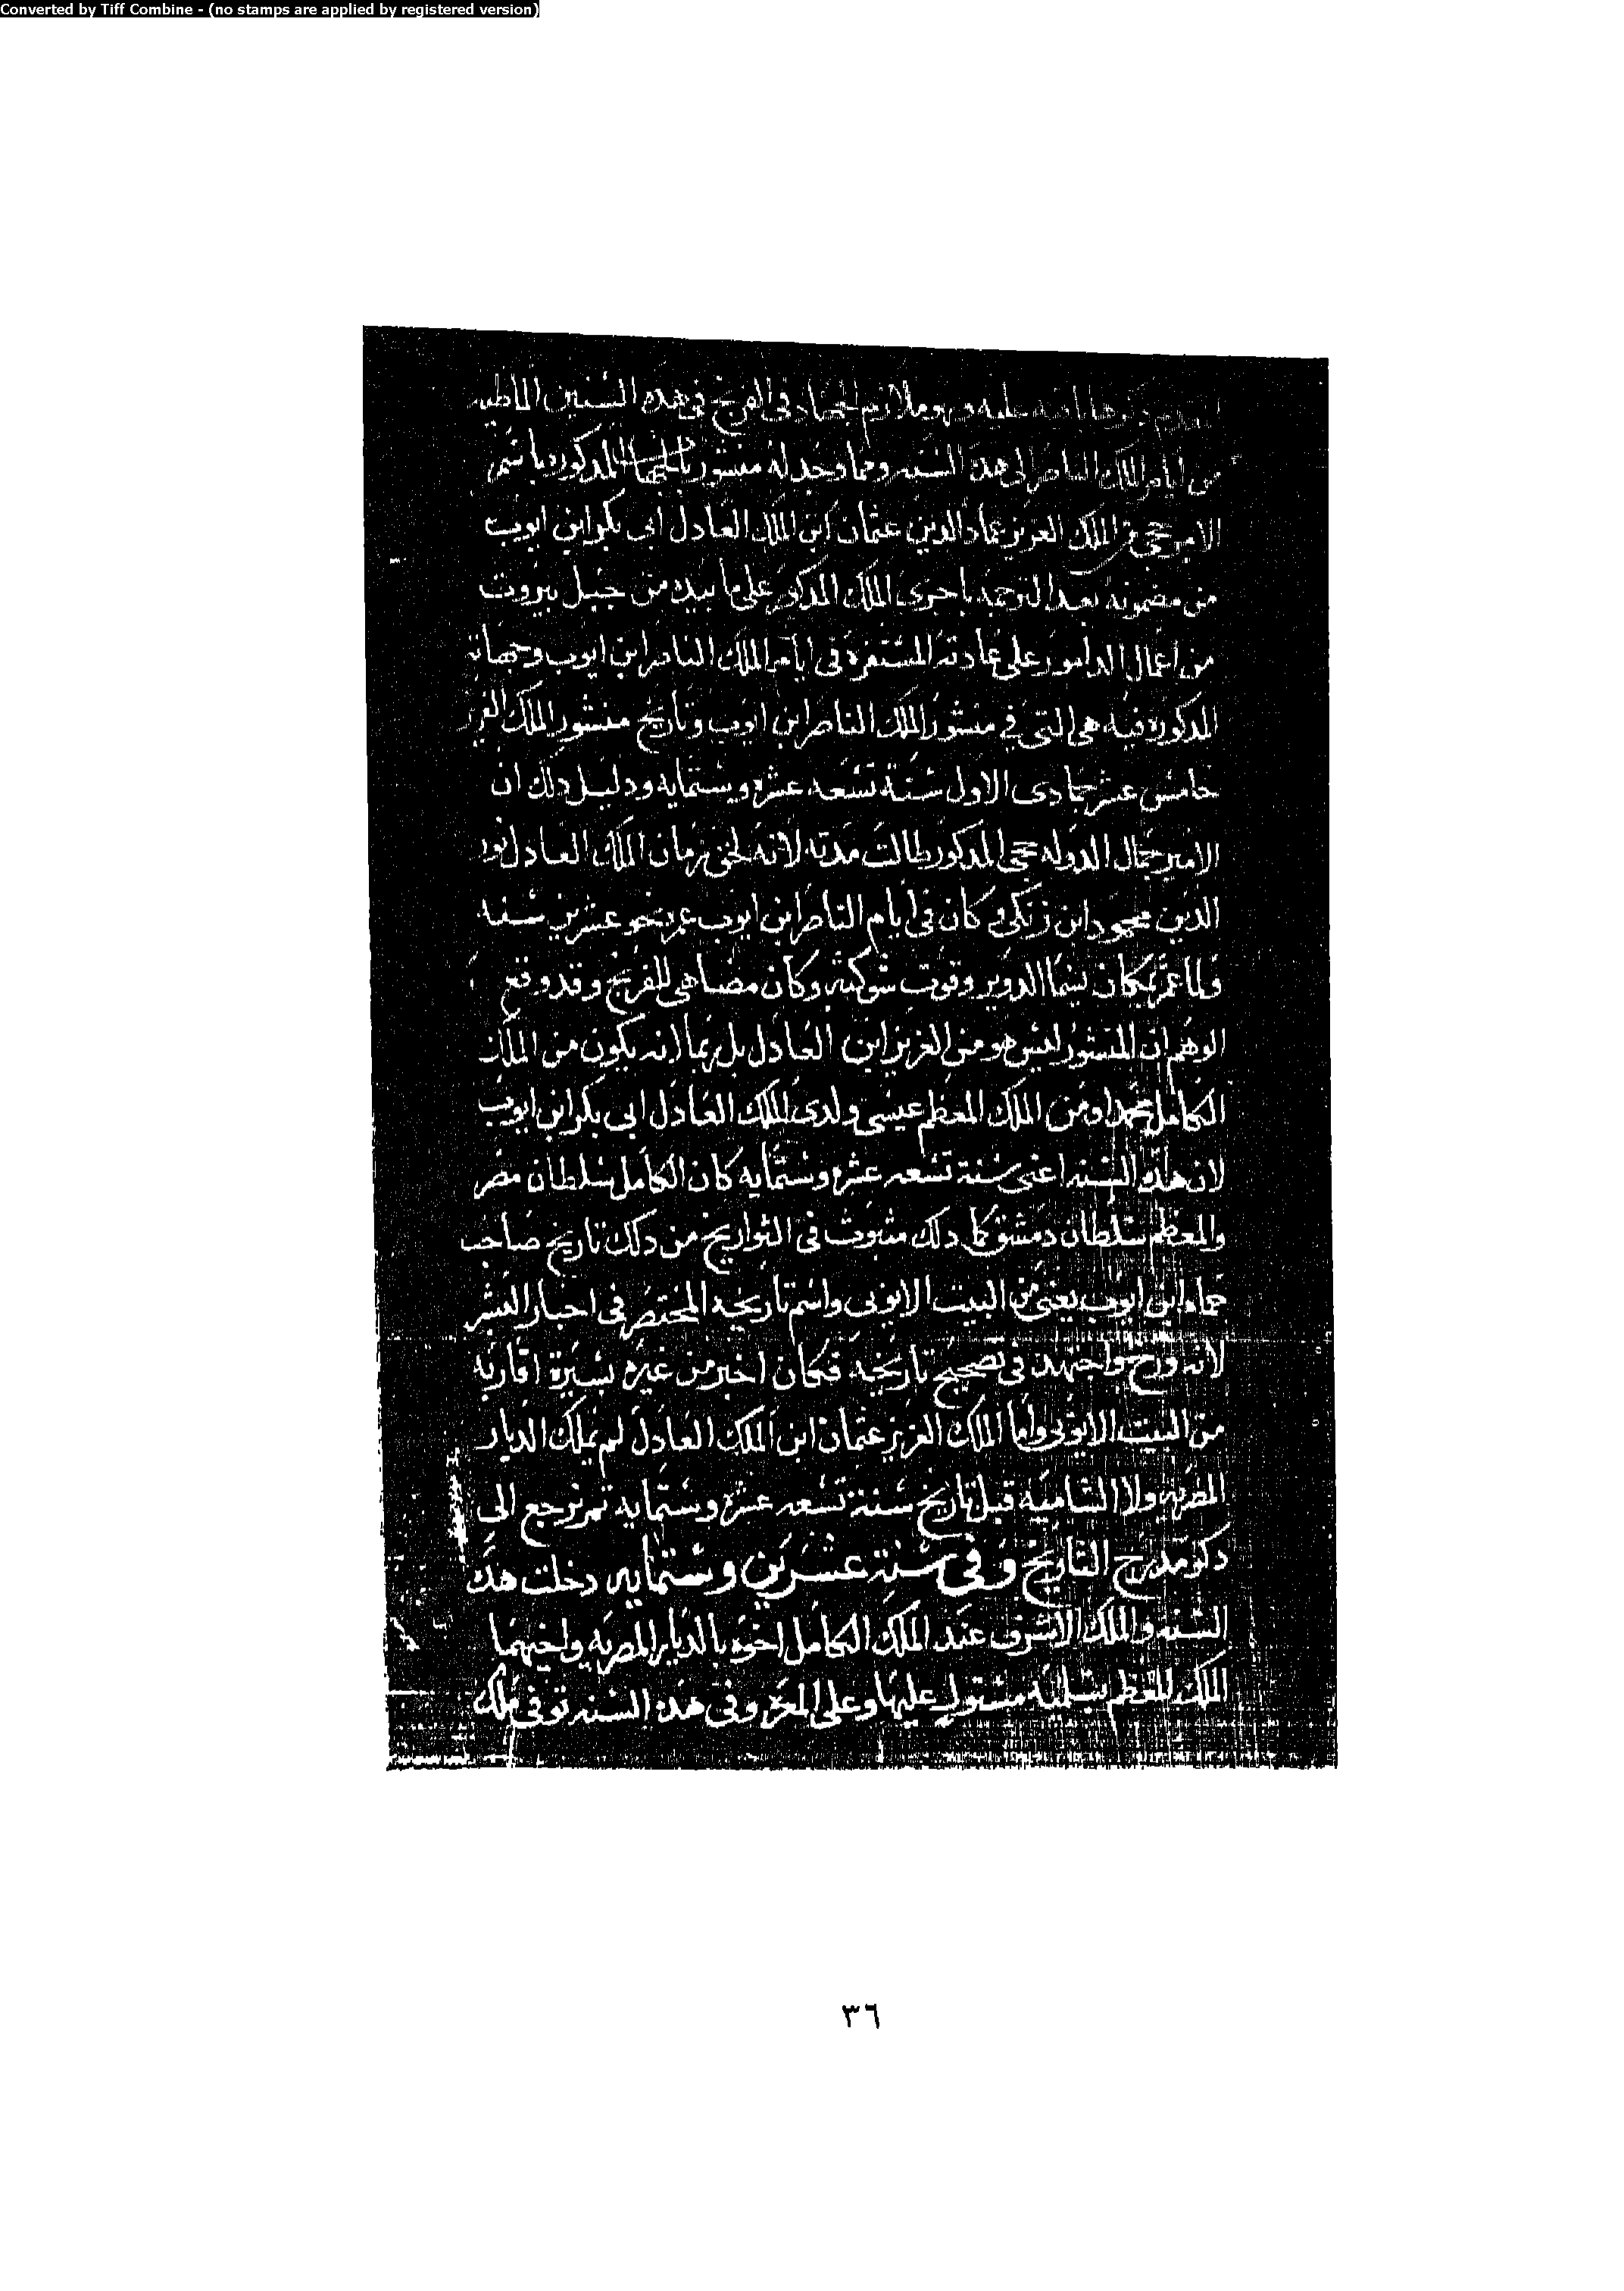 Converted by Tiff Combine - (no stamps are applied by registered version)
وهو ملازم الجهاد في الفرنج في هذه السنين
من ايام الملك الناصر الى هذه السنه ومما وجد له منشور المذكوره باسم
الامير حجى من الملك العزيز عماد الدين عثمان ابن الملك العادل ابى بكر ابن ايوب
من مضمونه بعد الترجمه باجرى الملك المذكور على ما بيده من جبيل بيروت
من اعمال الدامور على عادته المستمره فى ايام الملك الناصر ابن ايوب وجهاته
المذكوره فيه هى التى في منشور الملك الناصر ابن ايوب وتاريخ منشور الملك العزيز
خامس عشر جمادى الاول سنة تسعه عشره وستمايه ودليل ذلك ان
الامير جمال الدوله حجى المذكور طالت مدته لانه لحق زمان الملك العادل نور
الدين محمود ابن زنكى وكان في ايام الناصر ابن ايوب عمره نحو عشرين سنه
ولما عمر كان ينما الدوير وقويت شوكته وكان مضاهى للفرنج وقد وقع
الوهم ان المنشور ليس هو من العزيز ابن العادل بل ربما انه يكون من الملك
الكامل محمد او من الملك المعظم عيسى ولدى الملك العادل ابى بكر ابن ايوب
لان هذه السنه اعنى سنة تسعه عشره وستمايه كان الكامل سلطان مصر
والمعظم سلطان دمشق كل ذلك مثبوت فى التواريخ من ذلك تاريخ صاحب
حماه ابن ايوب يعنى من البيت الايوبى واسم تاريخه المختصر فى اخبار البشر
لانه ورخ واجتهد فى تصحيح تاريخه فكان اخبر من غيره بسيرة اقاربه
من البيت الايوبى واما الملك العزيز عثمان ابن الملك العادل لم يملك الديار
المصريه ولا الشاميه قبل تاريخ سنة تسعه عشره وستمايه ثم نرجع الى
ذكر مدرج التاريخ وفى سنة عشرين وستمايه دخلت هذه
السنه والملك الاشرف عند الملك الكامل اخوه بالديار المصريه واخيهما
الملك المعظم بسلميه مستولى عليها وعلى المعره وفى هذه السنه توفى ملك
٣٦